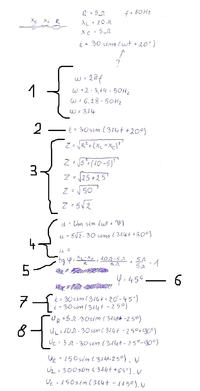 R = 5Ω f = 50Hz
XL XC R XL = 10Ω
XC = 5Ω
i = 30sin(ωt + 20°)
?
1
ω = 2πf
ω = 2 · 3,14 · 50Hz
ω = 6,28 · 50Hz
ω = 314
2 i = 30sin(314t + 20°)
3
Z = √R² + (XL - XC)²
Z = √5² + (10 - 5)²
Z = √25 + 25
Z = √50
Z = 5√2
4
u =
5
6
φ = 45°
7
i = 30sin(314t + 20° - 45°)
i = 30sin(314t - 25°)
8
uR = 5Ω · 30sin(314t - 25°)
uL = 10Ω · 30sin(314t - 25° + 90°)
uC = 5Ω · 30sin(314t - 25° - 90°)
uR = 150sin(314t - 25°), V
uL = 300sin(314t + 65°), V
uC = 150sin(314t - 115°), V